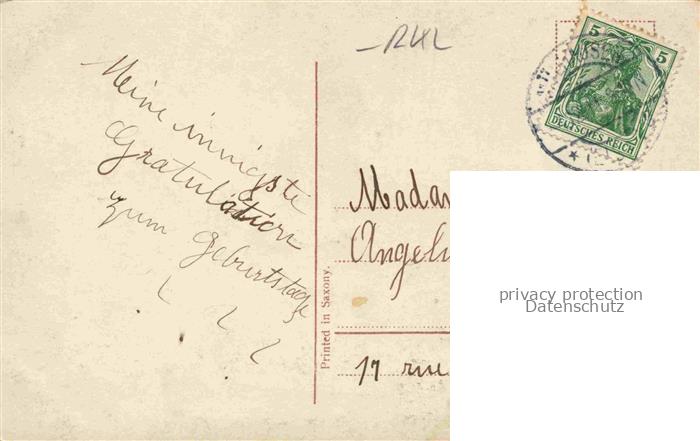 Meine innigste
Gratulation
zum Geburtstage
Printed in Saxony.
5 5
DEUTSCHES REICH
Madam
Angeli
17 rue
privacy protection
Datenschutz